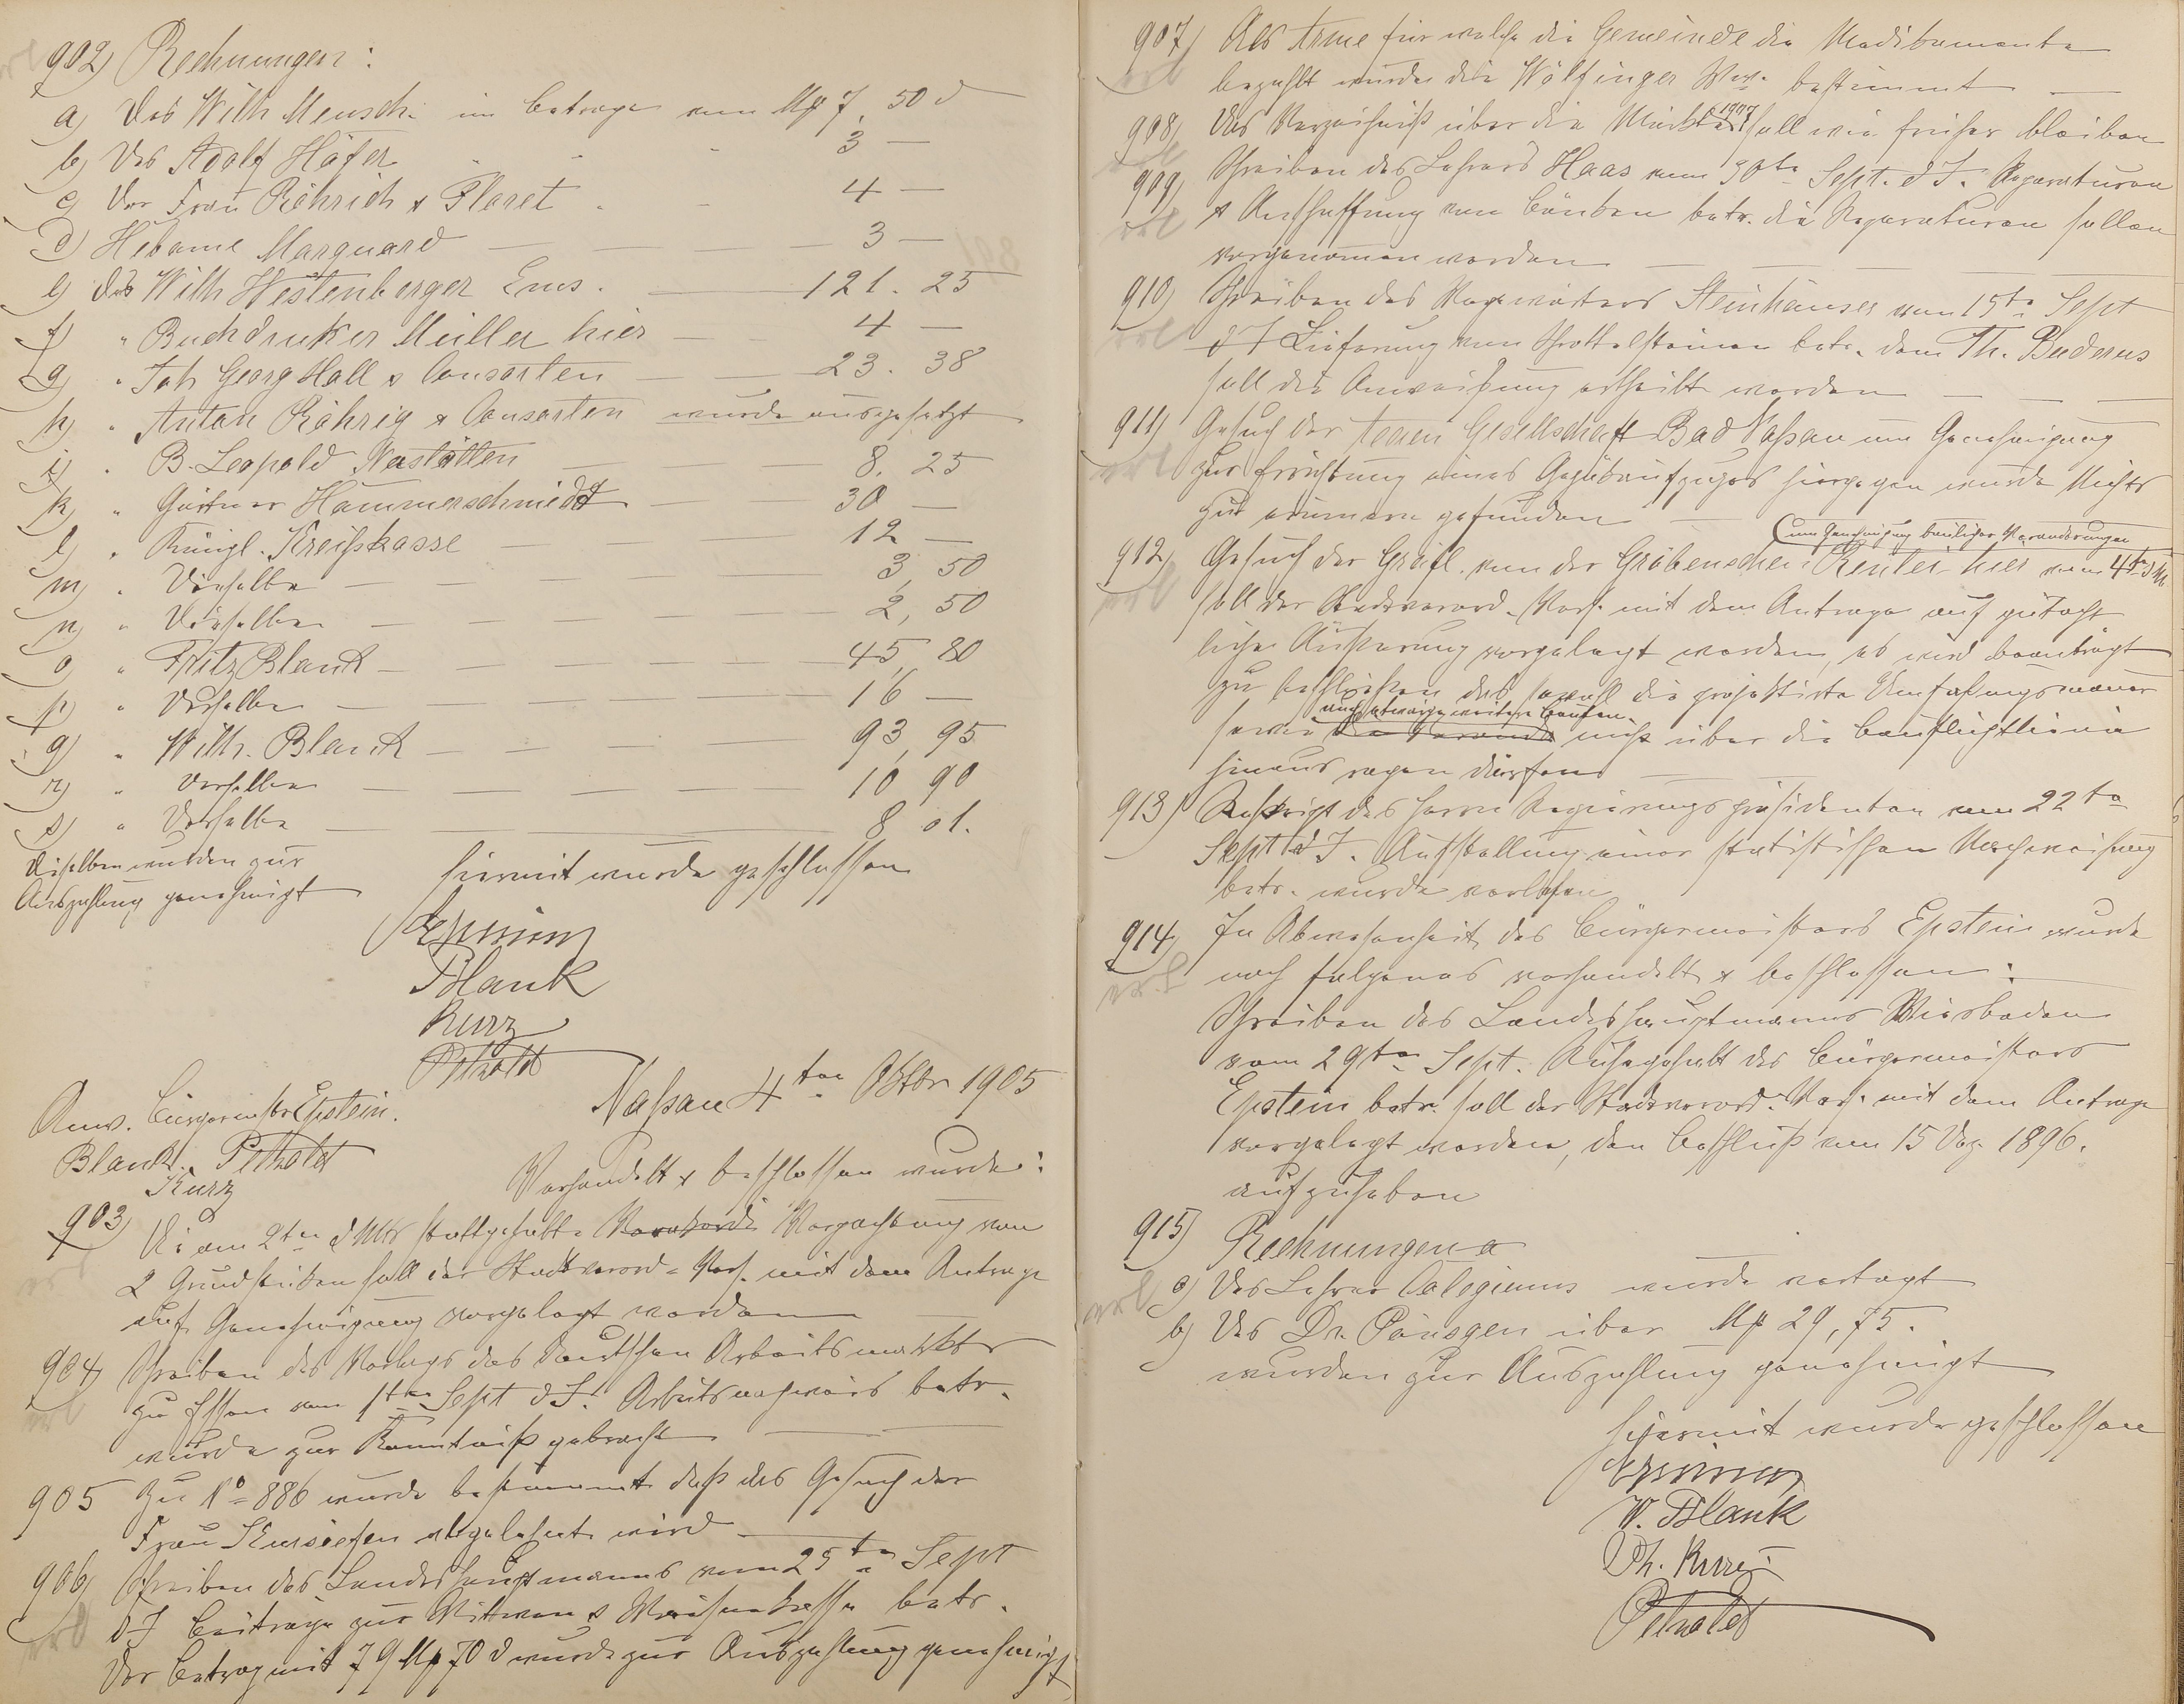 902) Rechnungen:
a) Des Wilh Mensch. im Betrage von Mk 7,50 d
b) Des Adolf Höfer " " 3 —
c) Der Frau Röhrich & Floret " 4 —
d) Hebame Marquard — 3 —
e) des Wilh Westenberger Ems. — 121. 25
f) " Buchdruker Müller hier — 4 —
g) " Joh Georg Hall & Consorten — 23. 38
h) " Anton Röhrig & Consorten wurde ausgesetzt
i) " B. Leopold Nastätten — 8. 25
k) " Gärtner Hammerschmidt — 30 —
l) " Königl. Kreißkasse — 12 —
m) " Dieselbe — 3,50
n) " Dieselbe — 2,50
o) " Fritz Blank — 45,80
p) " Derselbe — 16 —
q) " Wilh. Blank — 93,95
r) " Derselbe — 10 90
s) " Derselbe — 8 01.
Dieselben wurden zur
Auszahlung genehmigt
hiermit wurde geschlossen
Epstein
Blank
Kurz
Pethold
Naßau 4ten Oktbr 1905
Anw. Bürgermstr Epstein.
Blank. Pethold
Kurz
Verhandelt & beschlossen wurde:
903) Die am 2ten d Mts stattgehabte Verpachtung von
2 Grundstücken soll der Stadtverord-Vers. mit dem Antrage
auf Genehmigung vorgelegt werden
904) Schreiben des Verlags des Deutschen Arbeitsmarkts
zu Essen vom 1ten Sept d J. Arbeitsnachweis betr.
wurde zur Kenntniß gebracht
905 Zu No 886 wurde bestimmt daß das Gesuch der
Frau abgelehnt wird
906) Schreiben des Landeshauptmanns vom 25ten Sept
d J Beiträge zur Witwen & Waisenkasse betr.
Der Betrag mit 79 Mk 70 d wurde zur Auszahlung genehmigt
907) Als Arme für welche die Gemeinde die Medikamente
bezahlt wurde die Wölfinger Wwe. bestimmt —
908) Das Verzeichniß über die 1907 soll wie früher bleiben
909) Schreiben des Lehrers Haas vom 30ten Sept. d J. Reparaturen
& Anschaffung von Bänken betr. die Reparaturen sollen
vorgenommen werden
910) Schreiben des Wegewärters Steinhäuser vom 15ten Sept
d J Lieferung von Schottelsteinen betr. dem Th. Buderus
soll die Anweißung ertheilt werden
911) Gesuch der Actien Gesellschaft Bad Naßau um Genehmigung
zur Errichtung eines Gepäckaufzuges hiergegen wurde Nichts
zu erinnern gefunden
(um Genehmigung baulicher Veränderungen
912) Gesuch der Gräfl. von der Gröbenschen Rentei hier vom 4t d M
soll der Stadtverord.-Vers. mit dem Antrage auf gutacht
liche Äußerung vorgelegt werden, es wird beantragt
zu beschließen daß sowohl die projektirte Umfaßungsmauer
auch etwaige weitere Bauten
sowie die Veranda nicht über die Baufluchtlinie
hinaus ragen dürfen
913) Reskript des Herrn Regierungspräsidenten vom 22ten
Sept d J. Aufstellung einer statistischen Nachweisung
betr. wurde verlesen
914) In Abwesenheit des Bürgermeisters Epstein wurde
noch folgendes verhandelt & beschlossen:
Schreiben des Landeshauptmanns Wiesbaden
vom 29ten Sept. Ruhegehalt des Bürgermeisters
Epstein betr. soll der Stadtverord.-Vers. mit dem Antrage
vorgelegt werden, den Beschluß vom 15 Dez. 1896.
aufzuheben
915) Rechnungen
a) Des Lehrer Calegiums wurde vertagt
b) Des Dr. Pönsgen über Mk 29,75.
wurden zur Auszahlung genehmigt
hiermit wurde geschlossen
Epstein
W. Blank
Ph. Kurz
Pethold